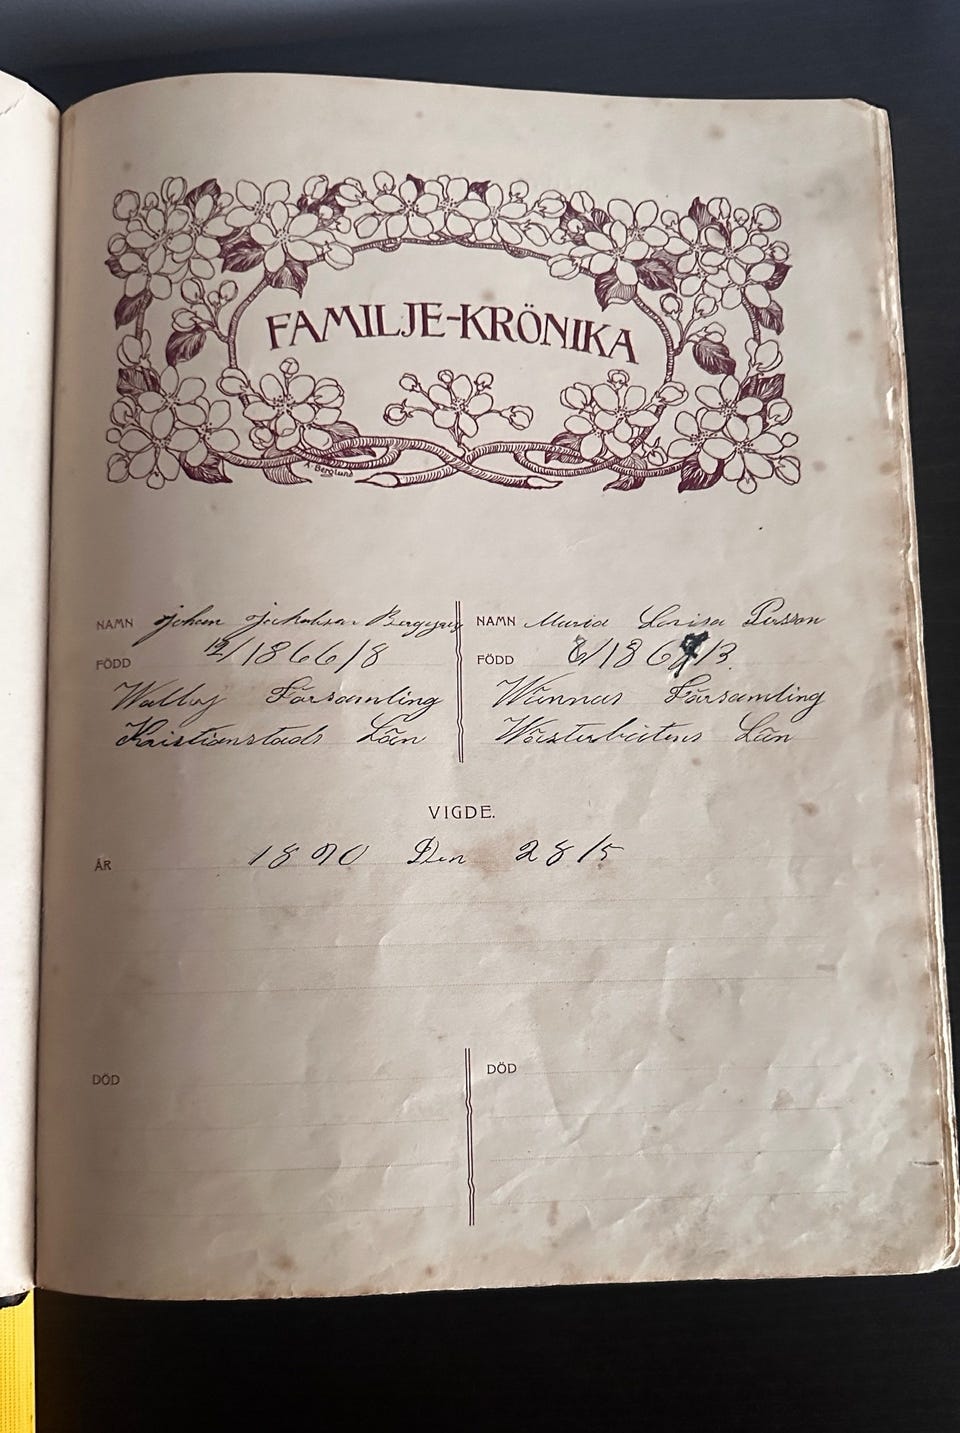 FAMILJE-KRÖNIKA
A. Berglund
NAMN Johan
FÖDD 12/1866/8
Församling
Kristianstads Län
NAMN Maria Lovisa Persson
FÖDD 8/186 /3.
Wännäs Församling
Wästerbotens Län
VIGDE.
ÅR 1890 Den 28/5
DÖD
DÖD